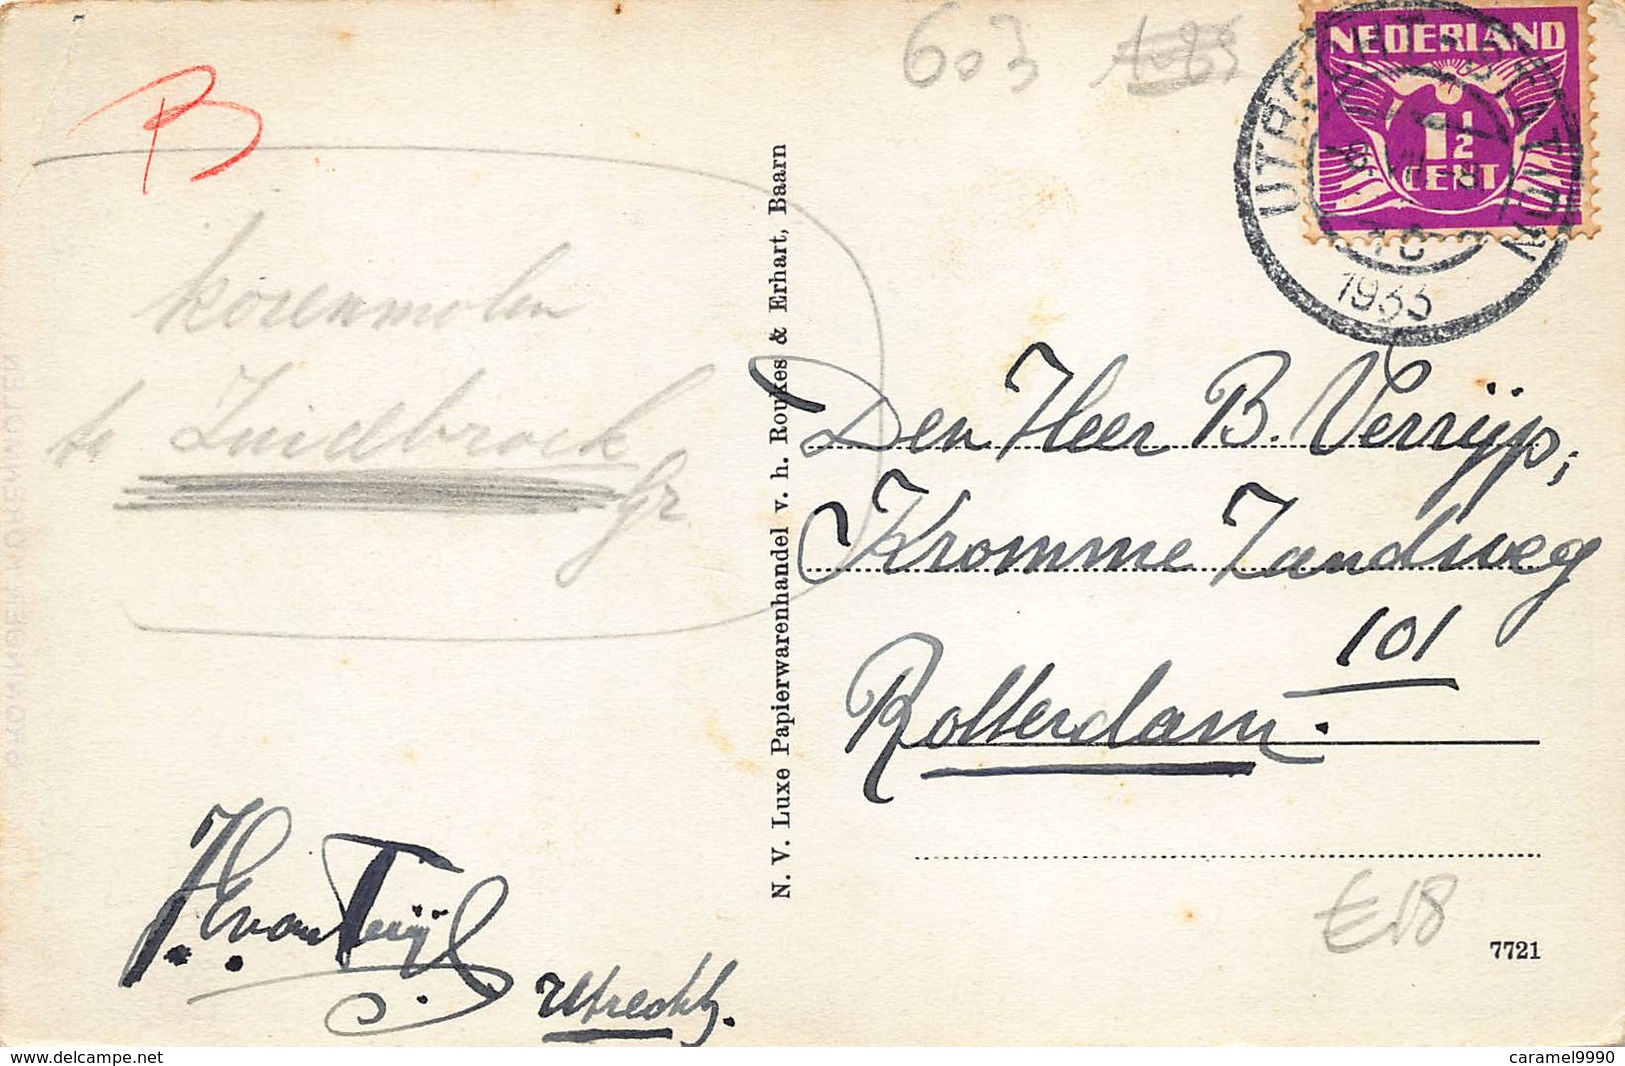 603
B
NEDERLAND
1½
CENT
UTRECHT-STATION
1933
korenmolen
te Zuidbroek
Gr
N. V. Luxe Papierwarenhandel v. h. Roukes & Erhart, Baarn
Den Heer B. Verrijp,
Kromme Zandweg
101
Rotterdam.
Utrecht.
€18
7721
delcampe.net
caramel9990